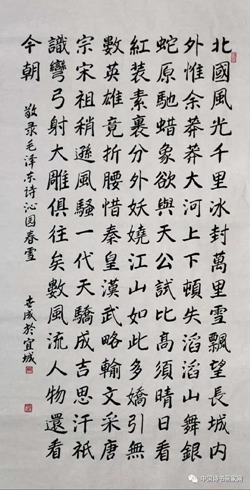 北國風光千里冰封萬里雪飄望長城內
外惟余莽莽大河上下頓失滔滔山舞銀
蛇原馳蜡象欲與天公試比高須晴日看
紅裝素裹分外妖嬈江山如此多嬌引無
數英雄竟折腰惜秦皇漢武略輸文采唐
宗宋祖稍遜風騷一代天驕成吉思汗祇
識彎弓射大雕俱往矣數風流人物還看
今朝
敬录毛泽东诗沁园春雪
成於宜城
中国诗书画家网